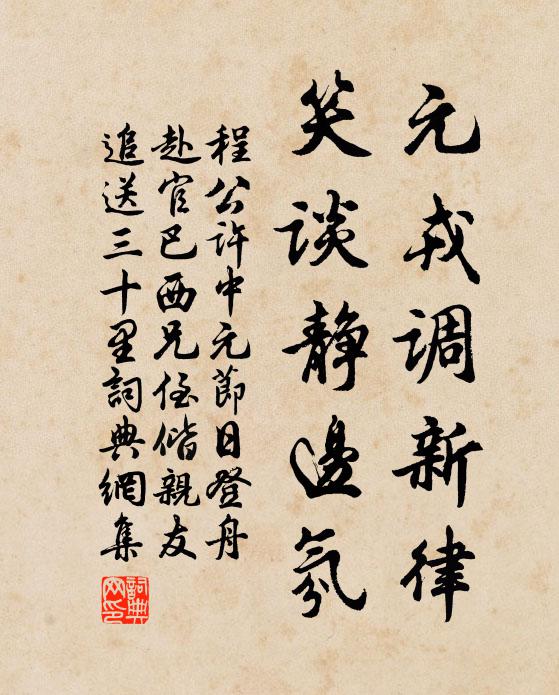 元戎调新律
笑谈静邊氛
程公许中元節日登舟
赴官巴西兄侄偕親友
追送三十里詞典網集
詞典網印